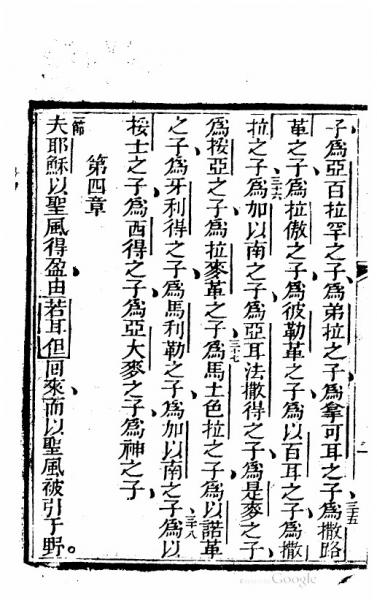 子為亞百拉罕之子為弟拉之子為拿可耳之子為撒路
三十五
革之子為拉傲之子為彼勒革之子為以百耳之子為撒
三十六
拉之子為加以南之子為亞耳法撒得之子為是麥之子
為挼亞之子為拉麥革之子為馬土色拉之子為以諾革
三十七
之子為牙利得之子為馬利勒之子為加以南之子為以
三十八
挼士之子為西得之子為亞大麥之子為神之子
第四章
一節
夫耶穌以聖風得盈由若耳但回來而以聖風被引于野
Google